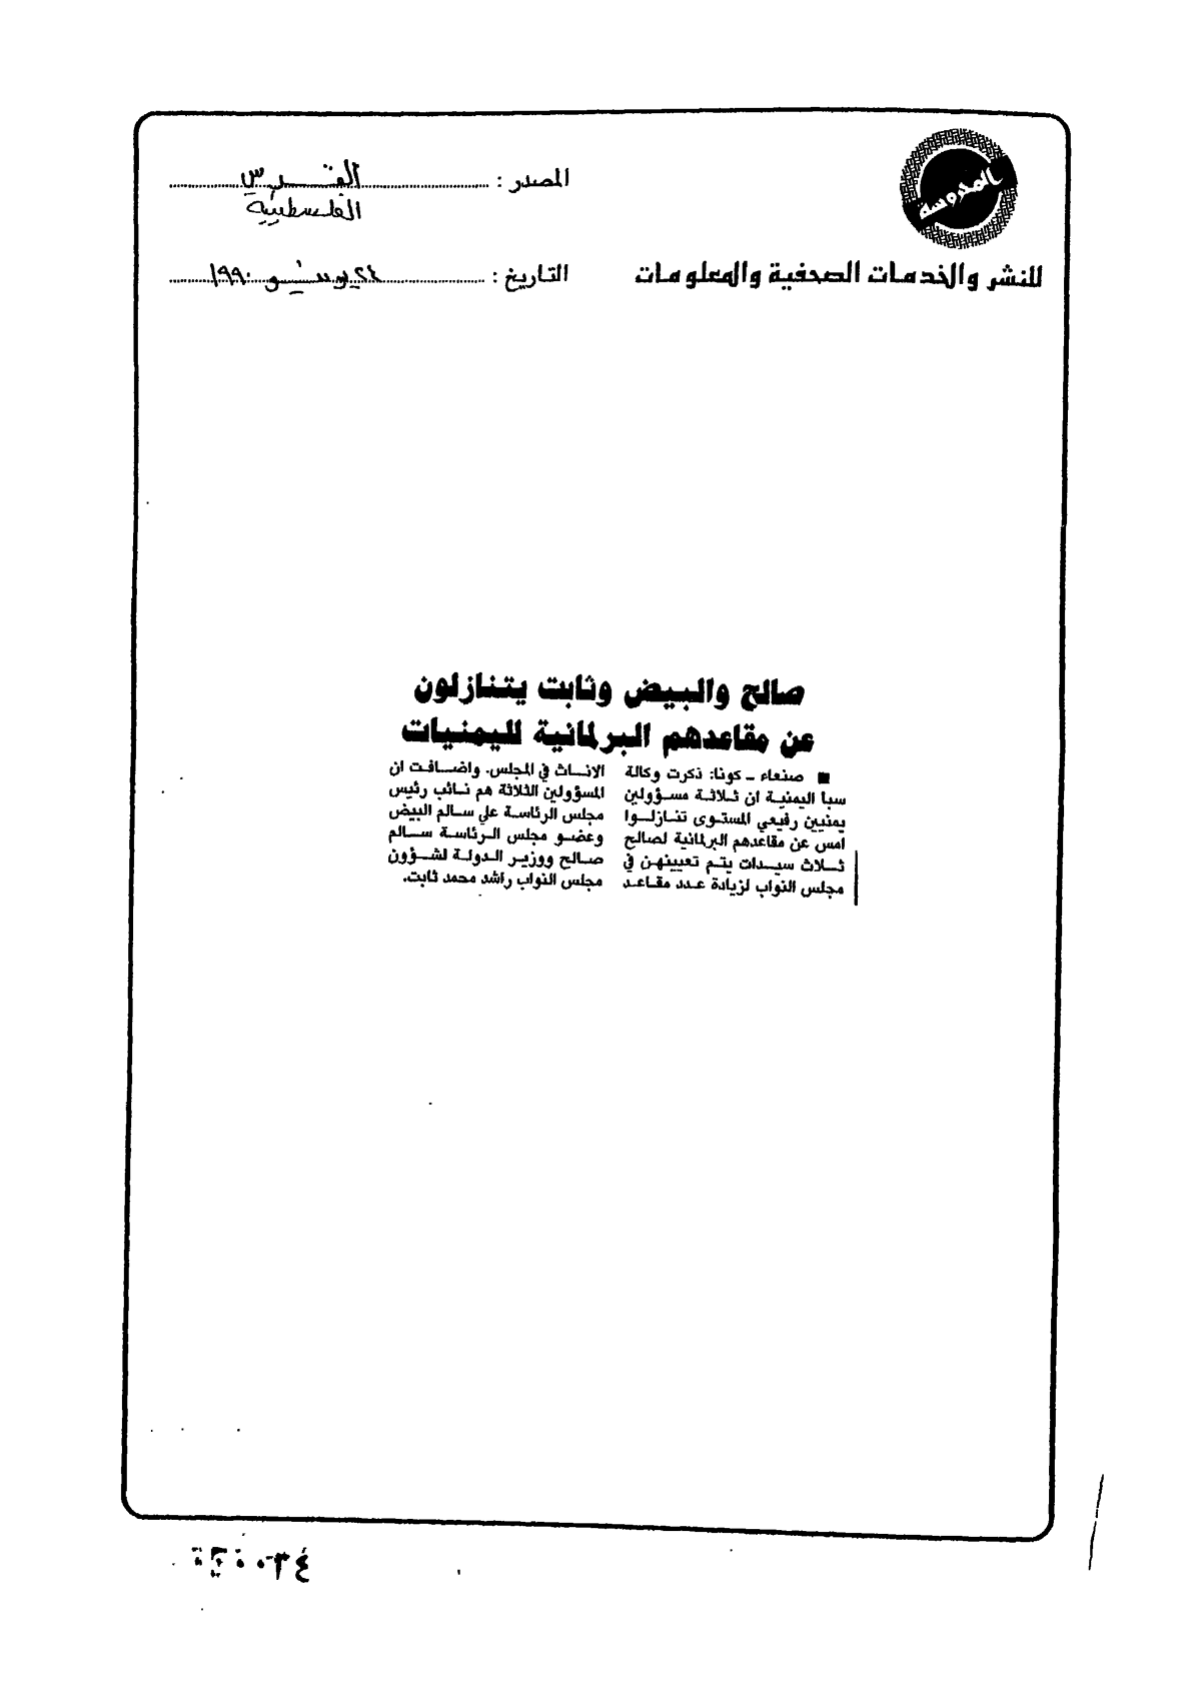 المحروسة
للنشر والخدمات الصحفية والمعلومات
المصدر : القدس
الفلسطينية
التاريخ : ٢٤ يونيو ١٩٩٠
صالح والبيض وثابت يتنازلون
عن مقاعدهم البرلمانية لليمنيات
■ صنعاء ـ كونا: ذكرت وكالة
سبا اليمنية ان ثلاثة مسؤولين
يمنيين رفيعي المستوى تنازلوا
امس عن مقاعدهم البرلمانية لصالح
ثلاث سيدات يتم تعيينهن في
مجلس النواب لزيادة عدد مقاعد
الاناث في المجلس. واضافت ان
المسؤولين الثلاثة هم نائب رئيس
مجلس الرئاسة علي سالم البيض
وعضو مجلس الرئاسة سالم
صالح ووزير الدولة لشؤون
مجلس النواب راشد محمد ثابت.